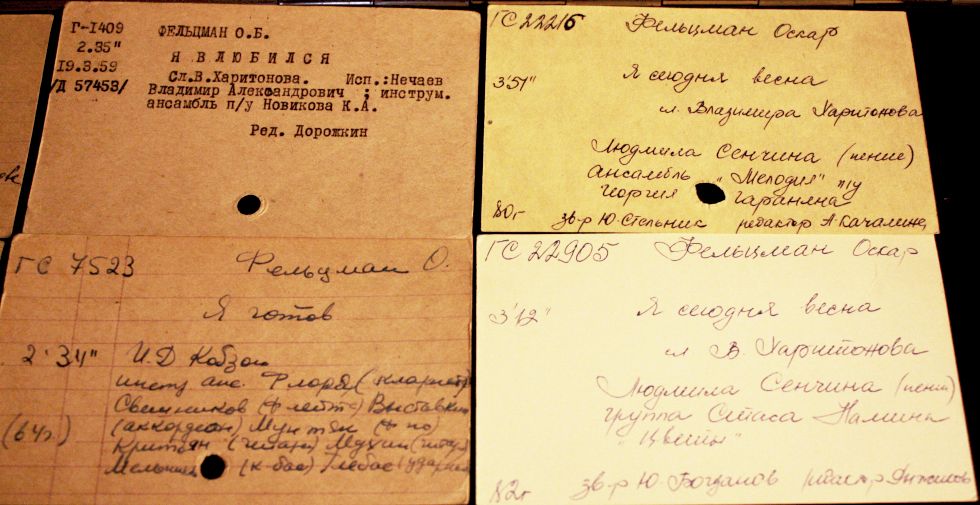 Г-1409 ФЕЛЬЦМАН О.Б.
2.35"
Я ВЛЮБИЛСЯ
19.3.59 Сл.В.Харитонова. Исп.:Нечаев
/Д 57453/ Владимир Александрович ; инструм.
ансамбль п/у Новикова К.А.
Ред. Дорожкин
ГС 22216 Фельцман Оскар
3'51" Я сегодня весна
сл. Владимира Харитонова
Людмила Сенчина (пение)
Ансамбль "Мелодия" п/у
Георгия Гараняна
80г зв-р Ю.Стельник редактор А.Качалина
ГС 7523 Фельцман О.
Я готов
2'34" И.Д Кобзон
инстр анс. Флоря (кларнет)
Свешников (флейта)
(64г.) (аккордеон) (ф-но)
(гитара) (гитара)
(к-бас)
ГС 22905 Фельцман Оскар
3'12" Я сегодня весна
сл В. Харитонова
Людмила Сенчина (пение)
группа Стаса Намина
"Цветы"
82г зв-р Ю.Богданов редактор